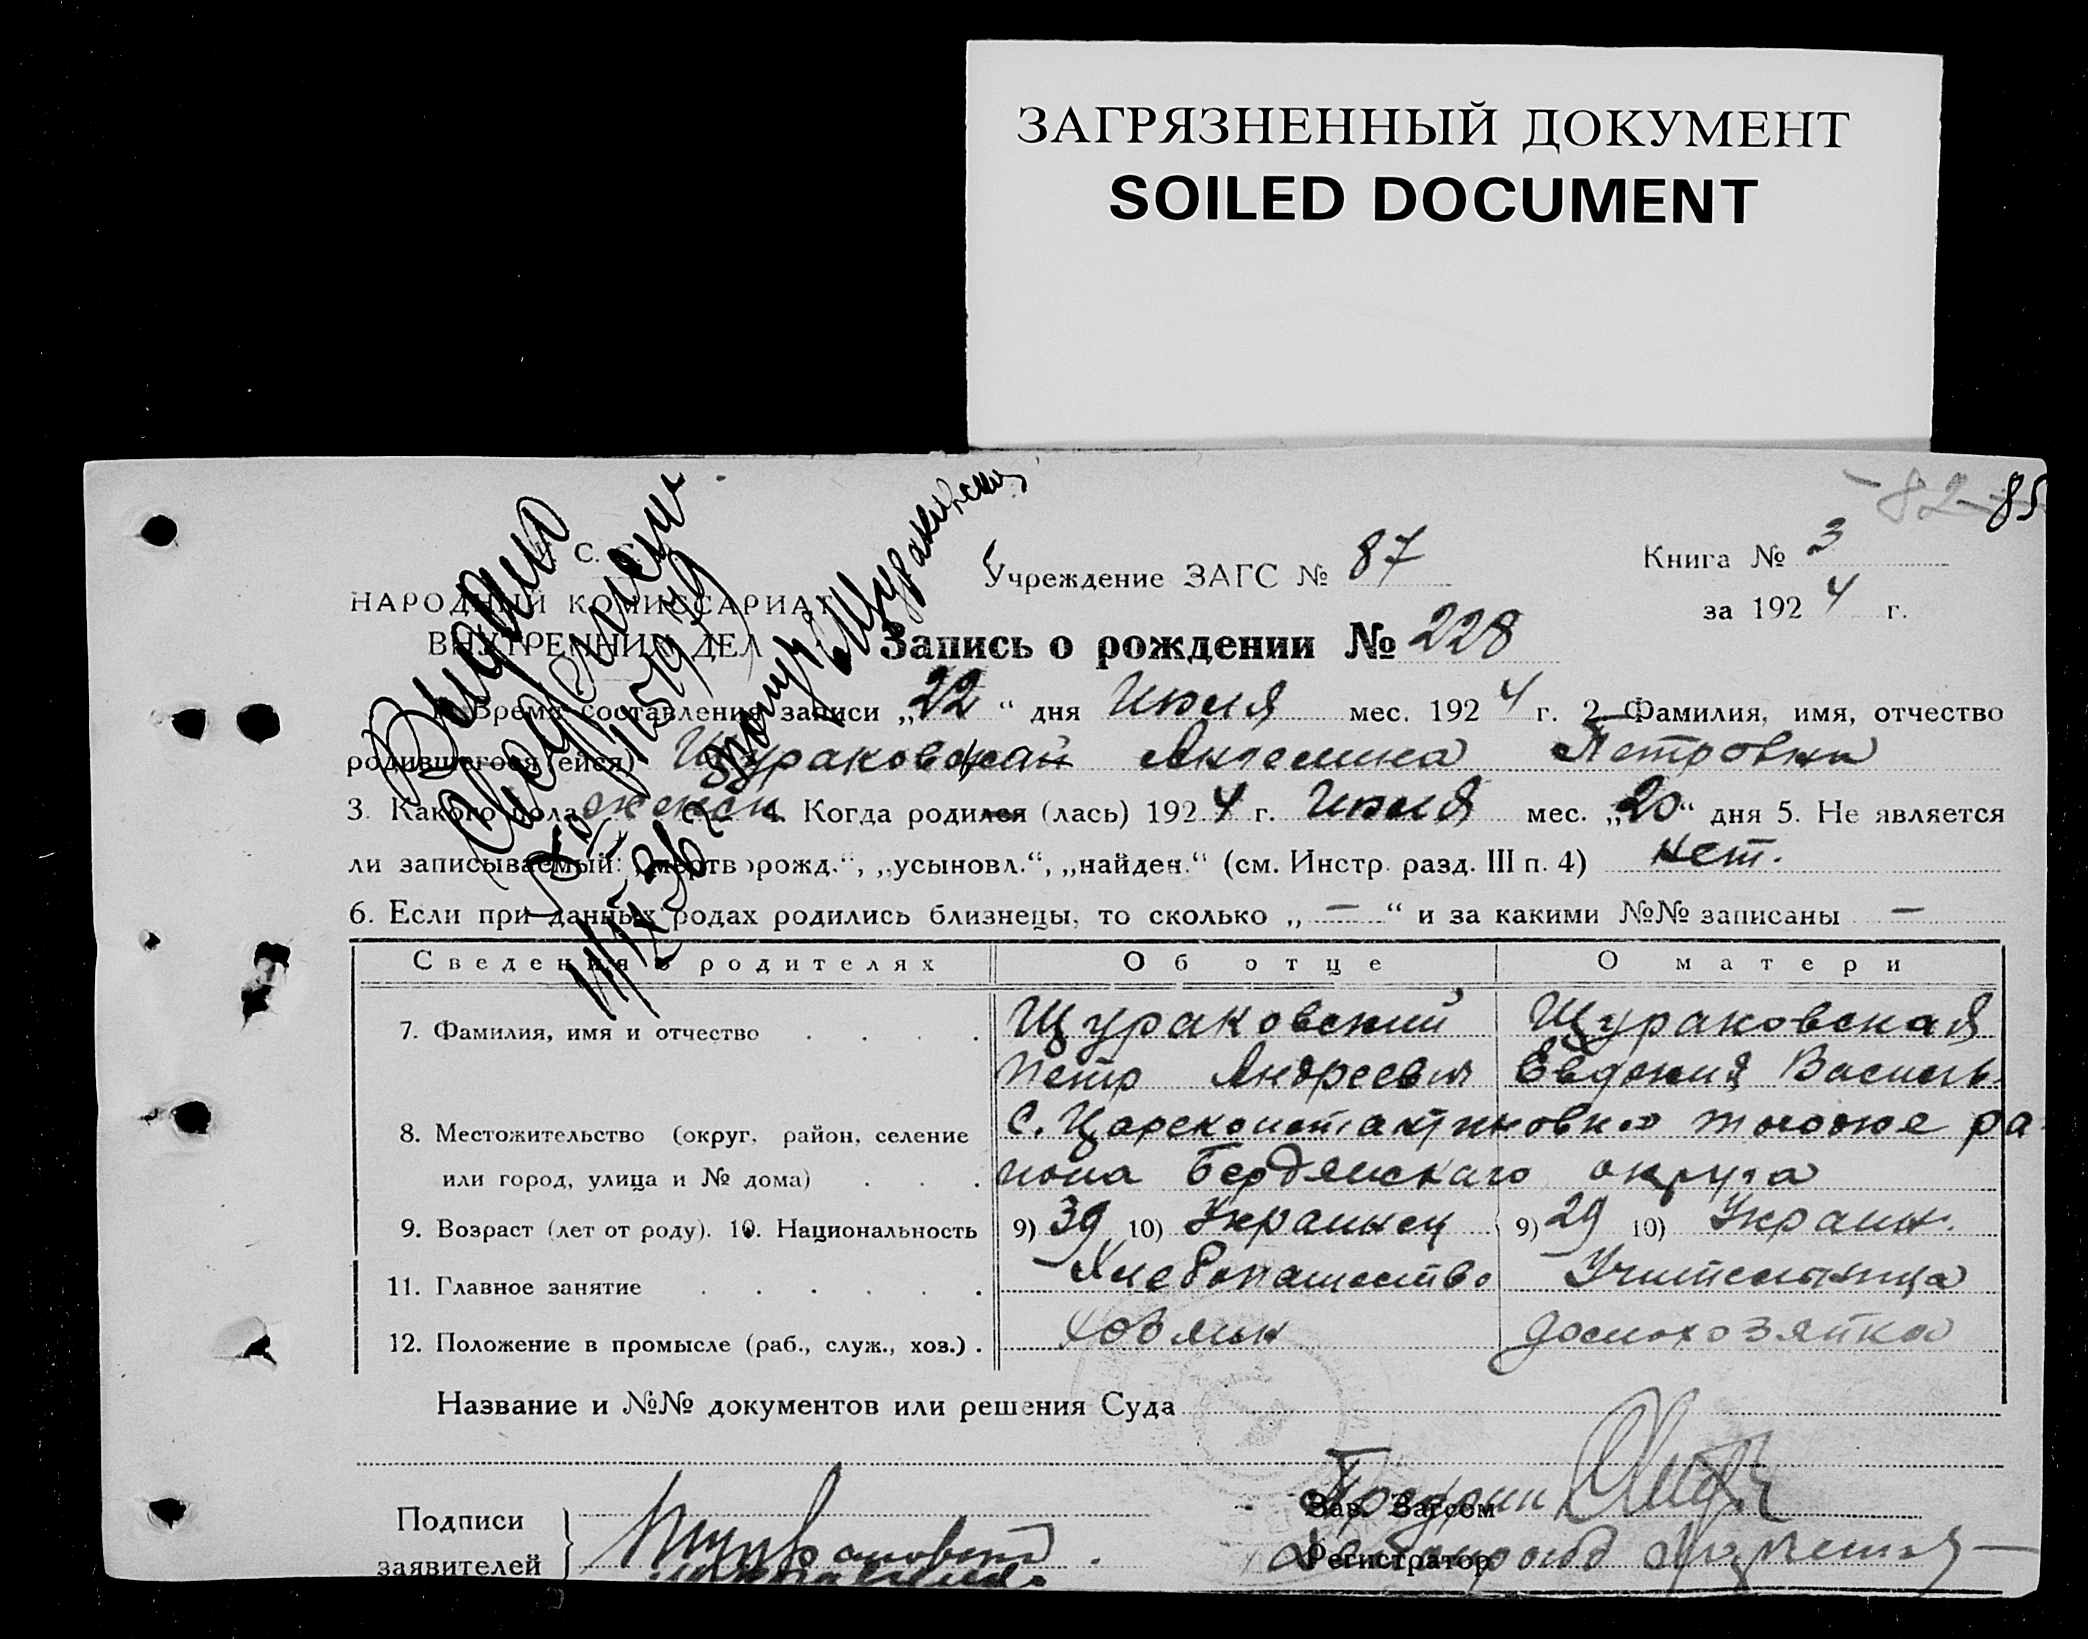 ЗАГРЯЗНЕННЫЙ ДОКУМЕНТ
SOILED DOCUMENT
82 85
Учреждение ЗАГС № 87
Книга № 3
за 1924 г.
НАРОДНЫЙ КОМИССАРИАТ
ВНУТРЕННИХ ДЕЛ
Запись о рождении № 228
Время составления записи „22“ дня Июля мес. 1924 г. 2. Фамилия, имя, отчество
родившегося (ейся) Щураковская Ангелина Петровна
3. Какого пола женск 4. Когда родился (лась) 1924 г. Июля мес. „20“ дня 5. Не является
ли записываемый: „мертворожд.“, „усыновл.“, „найден.“ (см. Инстр. разд. III п. 4) нет.
6. Если при данных родах родились близнецы, то сколько „ — “ и за какими №№ записаны —
Сведения о родителях Об отце О матери
7. Фамилия, имя и отчество Щураковский Щураковская
Петр Андреевич Евдокия Василь
8. Местожительство (округ, район, селение С. Цареконстантиновка ра
или город, улица и № дома) иона Бердянскаго округа
9. Возраст (лет от роду). 10. Национальность 9) 39 10) Украинец 9) 29 10) Украин.
11. Главное занятие Хлебопашество Учительница
12. Положение в промысле (раб., служ., хоз.) Хозяин домохозяйка
Название и №№ документов или решения Суда
Подписи
заявителей
Зав. Загсом
Регистратор